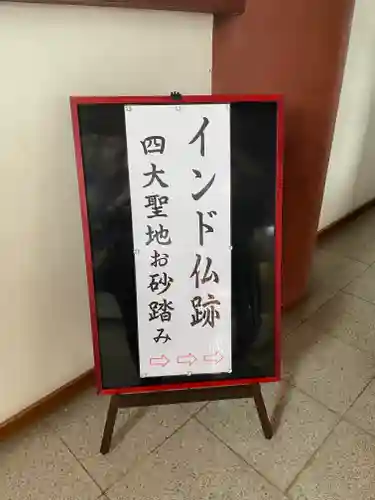 インド仏跡
四大聖地お砂踏み
⇨ ⇨ ⇨